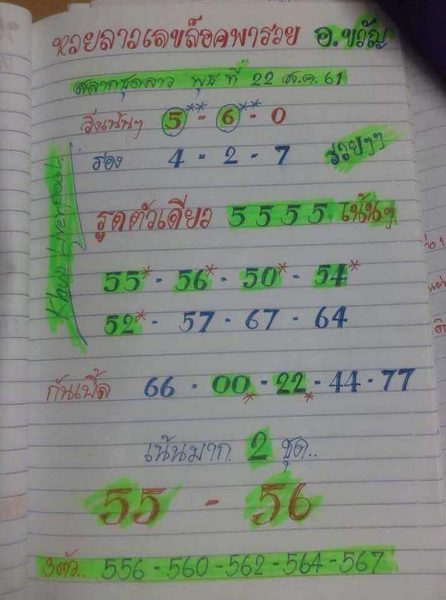 หวยลาวเลขล็อคพารวย อ.ขวัญ
สลากชุดลาว พุธ ที่ 22 ส.ค. 61
วิ่งเน้นๆ 5** - 6** - 0
ร่อง 4 - 2 - 7 รวยๆๆ
รูดตัวเดียว 5555 เน้นๆ
55* - 56* - 50* - 54*
52* - 57 - 67 - 64
กันเบิ้ล 66 - 00* - 22* - 44 - 77
เน้นมาก 2 ชุด..
55 - 56
3ตัว.. 556 - 560 - 562 - 564 - 567